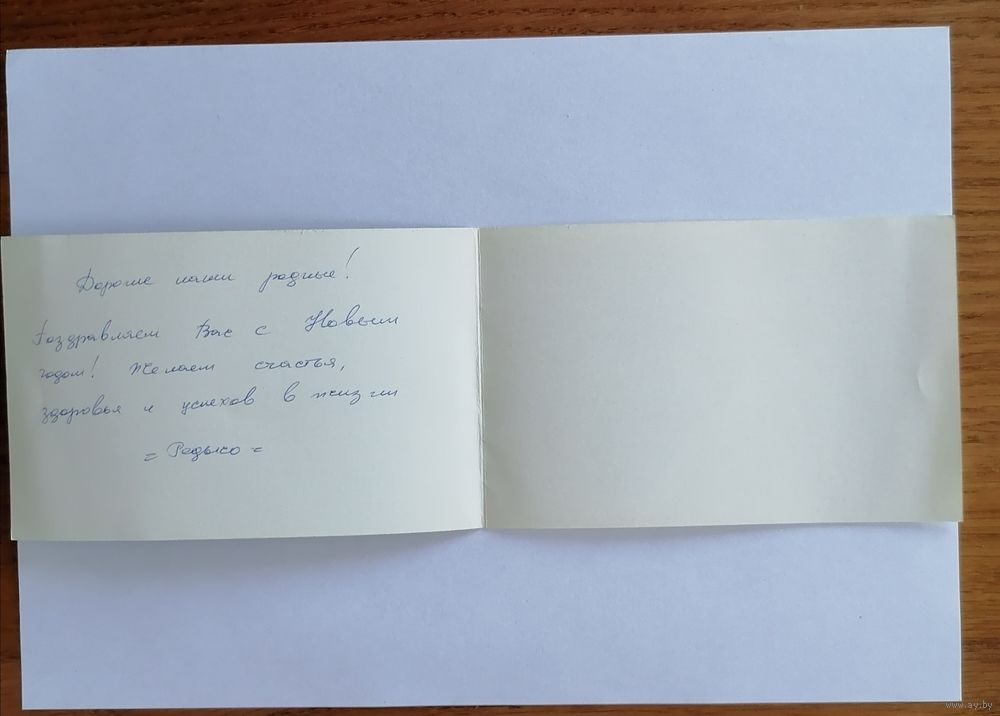 Дорогие наши родные!
Поздравляем Вас с Новым
годом! Желаем счастья,
здоровья и успехов в жизни
= Редько =
www.ay.by